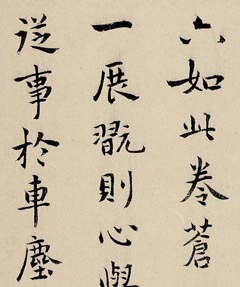 六如此卷蒼
一展翫則心與
從事於車塵